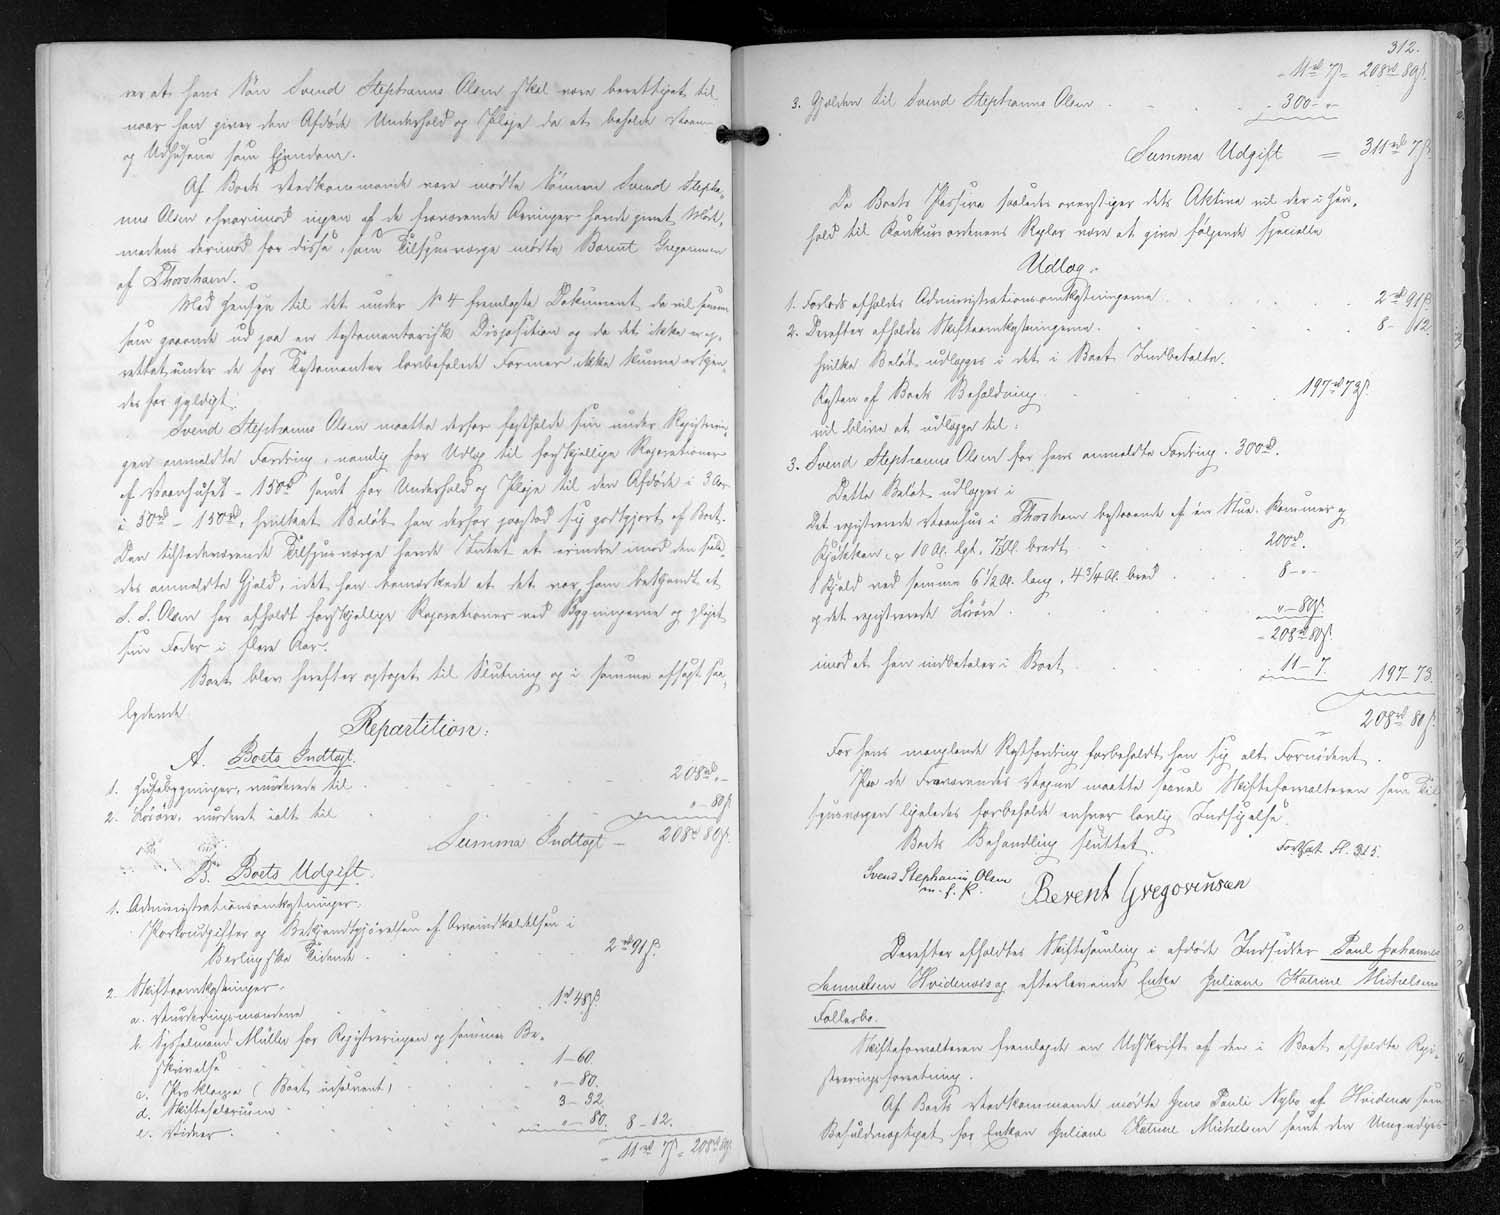 ver at hans Søn Svend Stephanus Olsen skal være berettiget til
naar han giver den Afdøde Underhold og Pleje da at beholde Vaan-
og Udhusene som Ejendom.
Af Boets Vedkommende var mødte Sønnen Svend Stepha-
nus Olsen, hvorimod ingen af de fraværende Arvinger havde givet Møde,
medens derimod for disse, som Tilsynsværge mødte Berent Gregersen
af Thorshavn.
Med Hensyn til det under N 4 fremlagte Dokument, da vil samme
som gaaende ud paa en testamentarisk Disposition og da det ikke er op-
rettet under de for Testamenter lovbefalede Former ikke kunne erkjen-
des for gyldigt.
Svend Stephanus Olsen maatte derfor fastholde sin under Registerin-
gen anmeldte Fordring, nemlig for Udlæg til forskjellige Reparationer
af Vaanhuset - 150 rd samt for Underhold og Pleje til den Afdøde i 3 Aar
à 50 rd - 150 rd, hvilket Beløb han derfor paastod sig godtgjort af Boet.
Den tilstedeværende Tilsynsværge havde Intet at erindre imod den saale-
des anmeldte Gjæld, idet han bemærkede at det var ham bekjendt at
S. S. Olsen har afholdt forskjellige Reparationer ved Bygningerne og plejet
sin Fader i flere Aar.
Boet blev herefter optaget til Slutning og i samme afsagt saa-
lydende
Repartition:
A. Boets Indtægt.
1. Husebygninger, vurderede til . 208 rd " -
2. Løsøre, vurderet ialt til " - 80 ß
Summa Indtægt - 208 rd 80 ß.
B. Boets Udgift.
1. Administrationsomkostninger:
Portoudgifter og Bekjendtgjørelsen af Arveindkaldelsen i
Berlingske Tidende . 2 rd 91 ß.
2. Skifteomkostninger.
a. Vurderingsmændene 1 rd 48 ß.
b. Sysselmand Müller for Registreringen og sammes Be-
skrivelse 1 - 60.
c. Proklama (Boet insolvent) " - 80.
d. Skiftesalarium 3 - 32.
e. Vidner. " - 80. 8 - 12.
= 11 rd 7 ß = 208 rd 80 ß.
312.
= 11 rd 7 ß = 208 rd 80 ß.
3. Gjælden til Svend Stephanus Olsen . 300 - " -
Summa Udgift = 311 rd 7 ß.
Da Boets Passiva saaledes overstiger dets Aktiva vil der i Hen-
hold til Konkursordenens Regler være at give følgende specielle
Udlæg.
1. Forlods afholdes Administrationsomkostningerne 2 rd 91 ß.
2. Derefter afholdes Skifteomkostningerne. 8 - 12.
hvilke Beløb udlægges i det i Boet Indbetalte.
Resten af Boets Beholdning . 197 rd 73 ß.
vil blive at udlægge til:
3. Svend Stephanus Olsen for hans anmeldte Fordring . 300 rd.
Dette Beløb udlægges i
Det registrerede Vaanhus i Thorshavn bestaaende af én Stue, Kammer og
Kjøkken, 10 Al. lgt, 7½ Al. bredt 200 rd.
1 Hjald ved samme 6 1/2 Al. lang, 4 3/4 Al. bred 8 - " -
og det registrerede Løsøre . " - 80 ß.
= 208 rd 80 ß.
imod at han indbetaler i Boet 11 - 7. 197 - 73.
208 rd 80 ß.
For hans manglende Restfordring forbeholdt han sig alt Fornødent.
Paa de Fraværendes Vegne maatte saavel Skifteforvalteren som Til-
synsværgen ligeledes forbeholde enhver lovlig Indsigelse.
Boets Behandling sluttet. Fortsat Fl. 315.
Svend Stephanus Olsen
m. f. P.
Berent Gregorinsæn
Derefter afholdtes Skiftesamling i afdøde Indsidder Paul Johannes
Samuelsen Hvidenæs og efterlevende Enke Juliane Katrine Michelsens
Fællesbo.
Skifteforvalteren fremlagde en Udskrift af den i Boet afholdte Regi-
streringsforretning.
Af Boets Vedkommende mødte Jens Pauli Nybo af Hvidenæs som
Befuldmægtiget for Enken Juliane Katrine Michelsen samt den Umyndiges